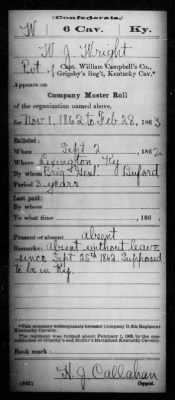 (Confederate.)
W 6 Cav. Ky.
W. J. Wright
Pvt., Capt. William Campbell's Co.,
Grigsby's Reg't, Kentucky Cav.*
Appears on
Company Muster Roll
of the organization named above,
for Nov 1, 1862 to Feb 28, 1863
Enlisted:
When Sept 2, 1862
Where Lexington Ky
By whom Brig. Genl. Buford
Period 3 years
Last paid:
By whom
To what time , 186
Present or absent absent
Remarks: Absent without leave
since Sept 25th 1862. Supposed
to be in Ky.
*This company subsequently became Company D, 6th Regiment
Kentucky Cavalry.
The regiment was formed about February 1, 1863, by the con-
Book mark:
H. J. Callahan
(642) Copyist.